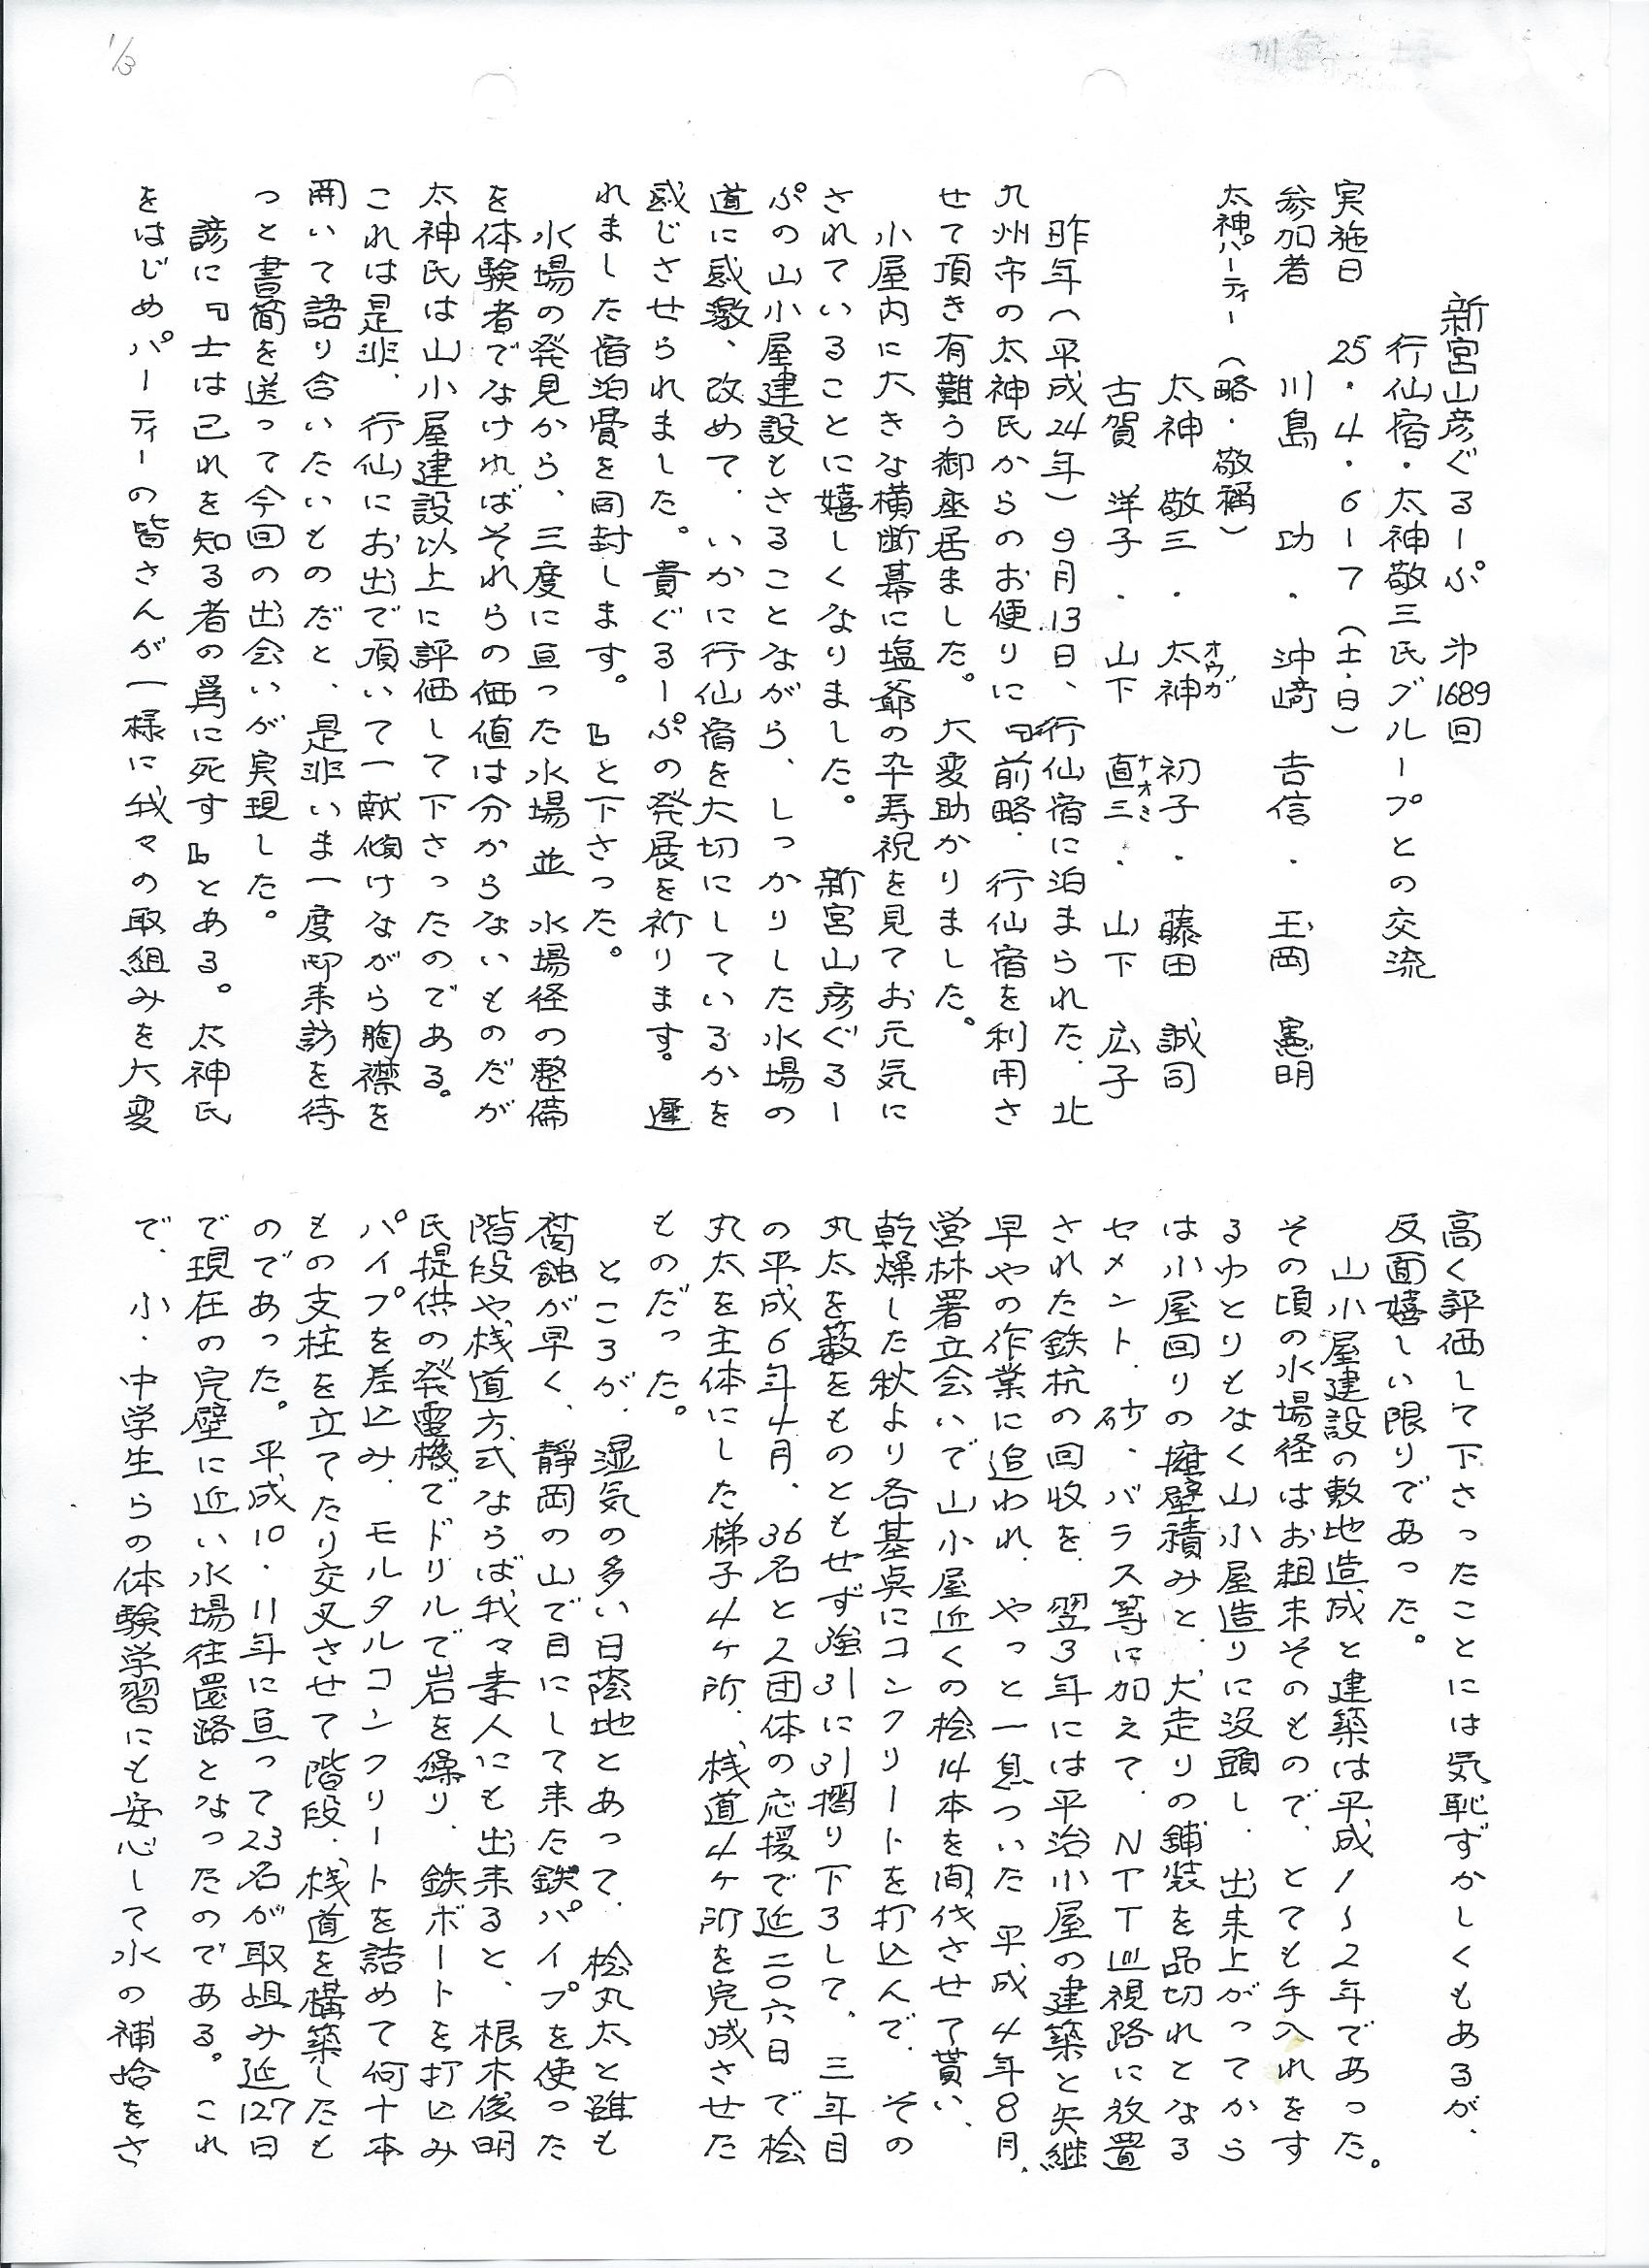 1/3
新宮山彦ぐるーぷ　第1689回
行仙宿・太神敬三氏グループとの交流
実施日　25・4・6〜7（土・日）
参加者　川島　功・沖﨑　吉信・玉岡　憲明
太神パーティー（略・敬称）
太神　敬三・太神　初子・藤田　誠司
オウガ
古賀　洋子・山下　直三・山下　広子
ナオミ
昨年（平成24年）9月13日、行仙宿に泊まられた、北
九州市の太神氏からのお便りに『前略、行仙宿を利用さ
せて頂き有難う御座居ました。大変助かりました。
小屋内に大きな横断幕に塩爺の卒寿祝を見てお元気に
されていることに嬉しくなりました。　新宮山彦ぐるー
ぷの山小屋建設もさることながら、しっかりした水場の
道に感激、改めて、いかに行仙宿を大切にしているかを
感じさせられました。貴ぐるーぷの発展を祈ります。遅
れました宿泊費を同封します。』と下さった。
水場の発見から、三度に亘った水場並水場径の整備
を体験者でなければそれらの価値は分からないものだが
太神氏は山小屋建設以上に評価して下さったのである。
これは是非、行仙にお出で頂いて一献傾けながら胸襟を
開いて語り合いたいものだと、是非いま一度御来訪を待
っと書簡を送って今回の出会いが実現した。
諺に『士は己れを知る者の為に死す』とある。太神氏
をはじめ、パーティーの皆さんが一様に、我々の取組みを大変
高く評価して下さったことには気恥ずかしくもあるが、
反面嬉しい限りであった。
山小屋建設の敷地造成と建築は平成1〜2年であった。
その頃の水場径はお粗末そのもので、とても手入れをす
るゆとりもなく山小屋造りに没頭し、出来上がってから
は小屋回りの擁壁積みと、犬走りの舗装を品切れとなる
セメント、砂、バラス等に加えて、NTT巡視路に放置
された鉄杭の回収を、翌3年には平治小屋の建築と矢継
早やの作業に追われ、やっと一息ついた平成4年8月、
営林署立会いで山小屋近くの桧14本を間伐させて貰い、
乾燥した秋より各基点にコンクリートを打込んで、その
丸太を藪をものともせず強引に引摺り下ろして、三年目
の平成6年4月、36名と2団体の応援で延二〇六日で桧
丸太を主体にした梯子4ヶ所、桟道4ヶ所を完成させた
ものだった。
ところが、湿気の多い日蔭地とあって、桧丸太と雖も
腐蝕が早く、静岡の山で目にして来た鉄パイプを使った
階段や桟道方式ならば我々素人にも出来ると、根木俊明
氏提供の発電機でドリルで岩を繰り、鉄ボートを打込み
パイプを差込み、モルタルコンクリートを詰めて何十本
もの支柱を立てたり交叉させて階段、桟道を構築したも
のであった。平成10・11年に亘って23名が取組み延127日
で現在の完璧に近い水場往還路となったのである。これ
で、小・中学生らの体験学習にも安心して水の補給をさ